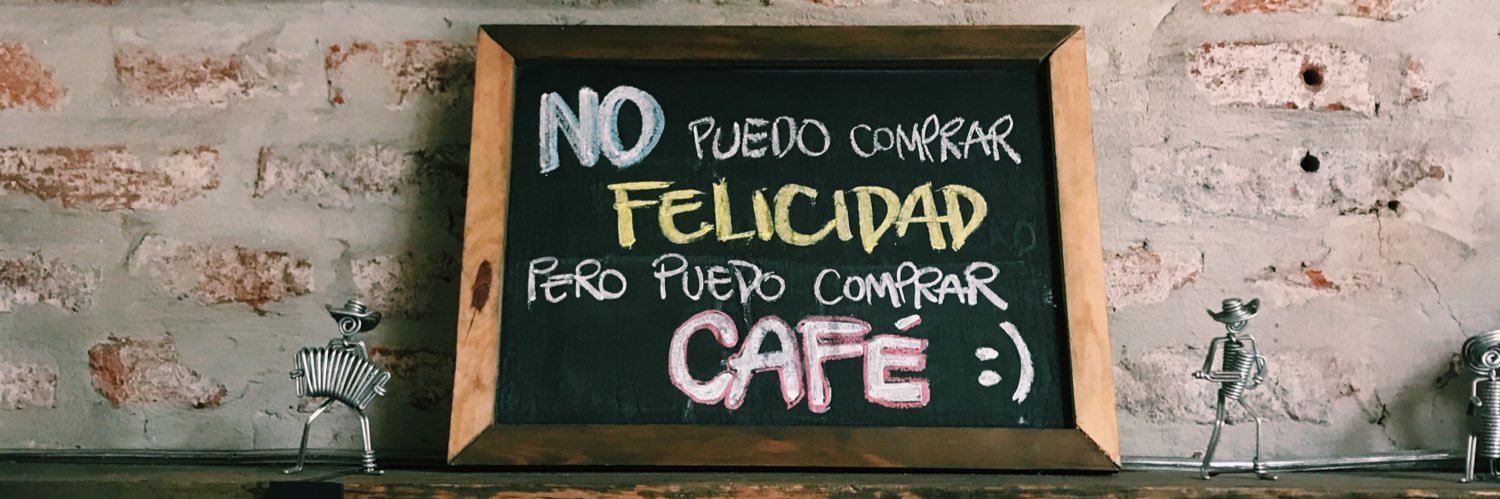 NO PUEDO COMPRAR
FELICIDAD
PERO PUEDO COMPRAR
CAFÉ :)